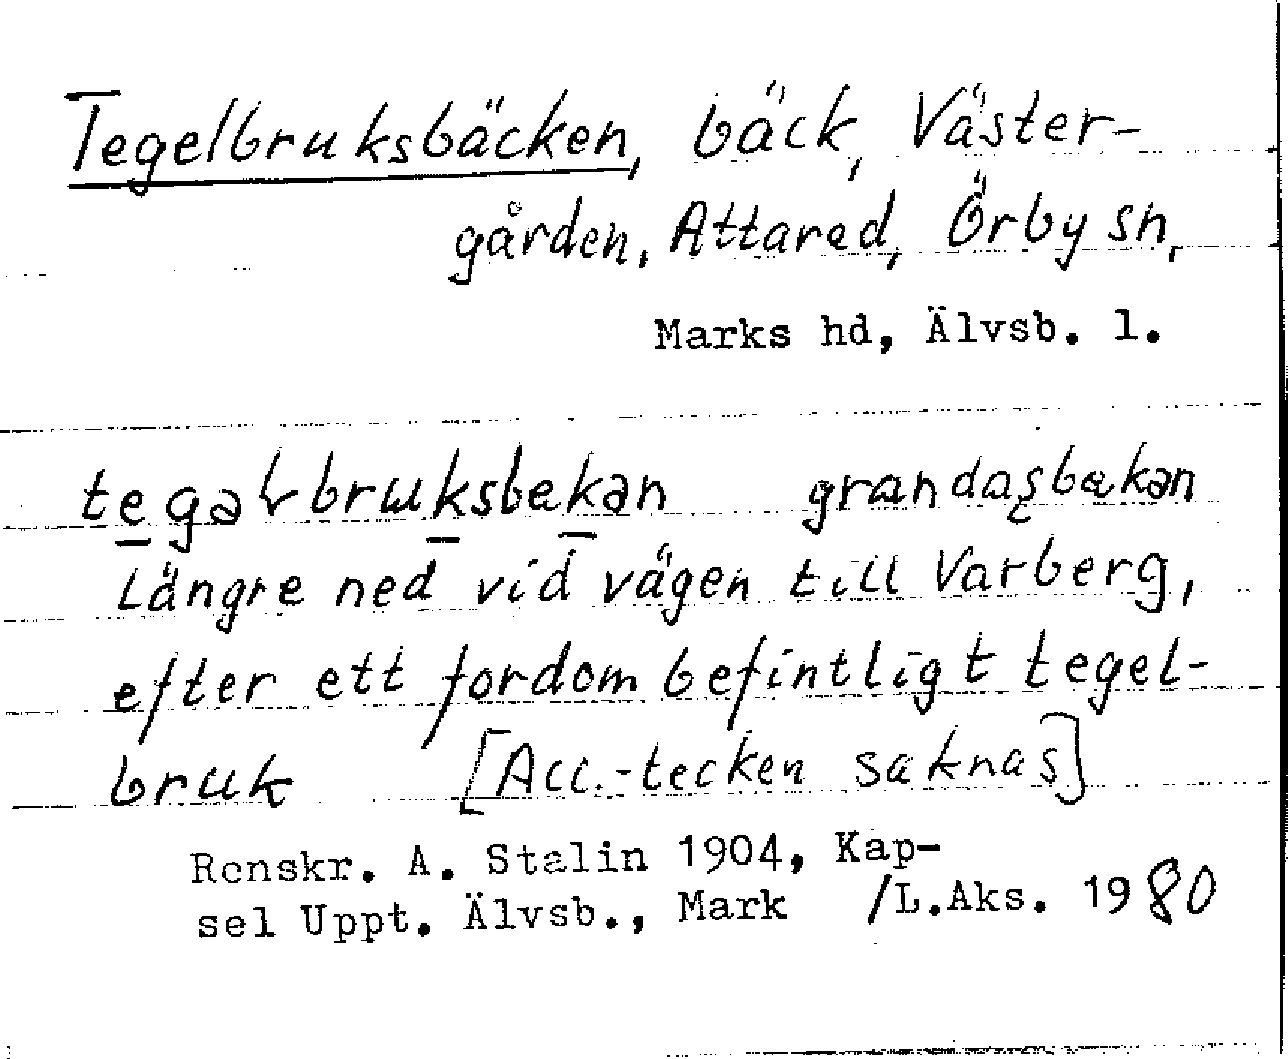 Tegelbruksbäcken, bäck, Väster-
gården, Attared, Örby sn,
Marks hd, Älvsb. l.
Längre ned vid vägen till Varberg,
efter ett fordom befintligt tegel-
bruk [Acc.-tecken saknas]
Renskr. A. Stalin 1904, Kap-
sel Uppt. Älvsb., Mark /L.Aks. 1980